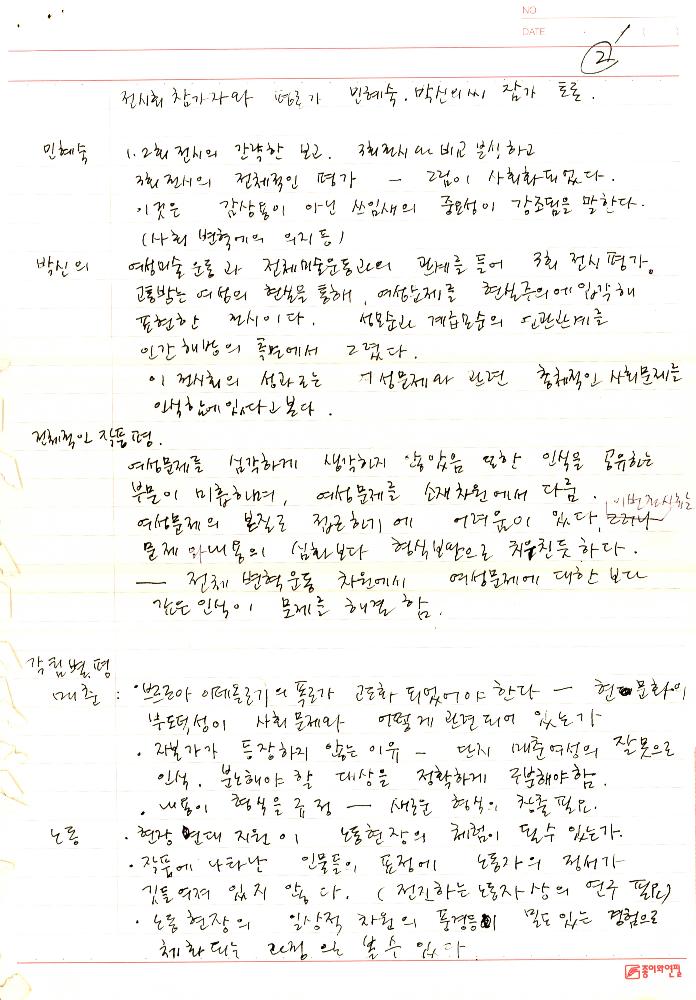 NO
DATE ( )
2
전시회 참가자와 평론가 민혜숙. 박신의씨 참가 토론.
민혜숙 1. 2회 전시의 간략한 보고. 3회전시와 비교 분석하고
3회 전시의 전체적인 평가 — 그림이 사회화되었다.
이것은 감상용이 아닌 쓰임새의 중요성이 강조됨을 말한다.
(사회 변혁에의 의지 등)
박신의 여성미술운동과 전체미술운동과의 관계를 들어 3회 전시 평가.
고통받는 여성의 현실을 통해, 여성문제를 현실주의에 입각해
표현한 전시이다. 성모순과 계급모순의 연관관계를
인간해방의 측면에서 그렸다.
이 전시회의 성과로는 여성문제와 관련 총체적인 사회문제를
인식함에 있다고 본다.
전체적인 작품평.
여성문제를 심각하게 생각하지 않았음 또한 인식을 공유하는
부문이 미흡하며, 여성문제를 소재차원에서 다룸.
여성문제의 본질로 접근하기에 어려움이 있다. 그러나 이번전시회는
문제와 내용의 심화보다 형식보완으로 치우친듯 하다.
— 전체 변혁운동 차원에서 여성문제에 대한 보다
깊은 인식이 문제를 해결함.
각팀별 평
매춘 : · 브르조아 이데올로기의 폭로가 고도화 되었어야 한다 — 현 문화의
부도덕성이 사회문제와 어떻게 관련되어 있는가
· 자본가가 등장하지 않는 이유 — 단지 매춘여성의 잘못으로
인식. 분노해야 할 대상을 정확하게 구분해야 함.
· 내용이 형식을 규정 — 새로운 형식의 창출 필요.
노동 · 현장 연대 지원이 노동현장의 체험이 될 수 있는가.
· 작품에 나타난 인물들의 표정에 노동자의 정서가
깃들여져 있지 않다. (전진하는 노동자상의 연구 필요)
· 노동현장의 일상적 차원의 풍경들이 밀도 있는 경험으로
체화되는 과정을 볼 수 있다
종이와연필